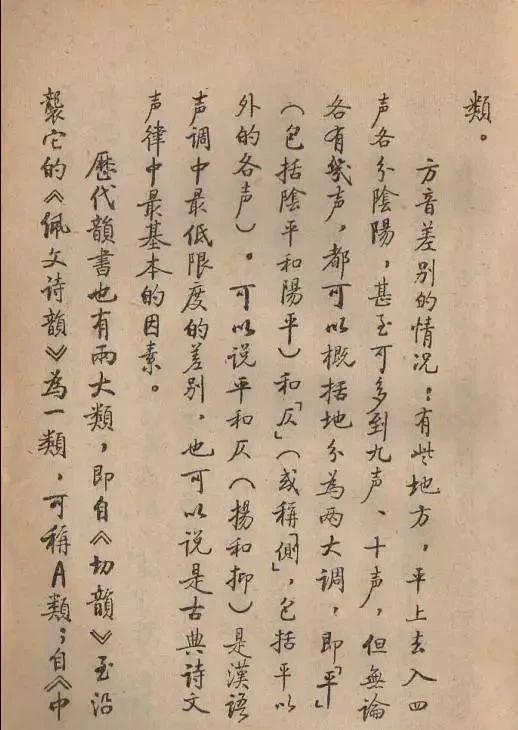 類。
方音差別的情况：有些地方，平上去入四
声各分陰陽，甚至可多到九声、十声，但無論
各有幾声，都可以概括地分為两大調，即「平」
（包括陰平和陽平）和「仄」（或稱「側」，包括平以
外的各声）。可以说平和仄（揚和抑）是漢語
声调中最低限度的差别，也可以说是古典诗文
声律中最基本的因素。
歷代韻書也有兩大類，即自《切韻》至沿
襲它的《佩文诗韻》為一類，可稱A類；自《中